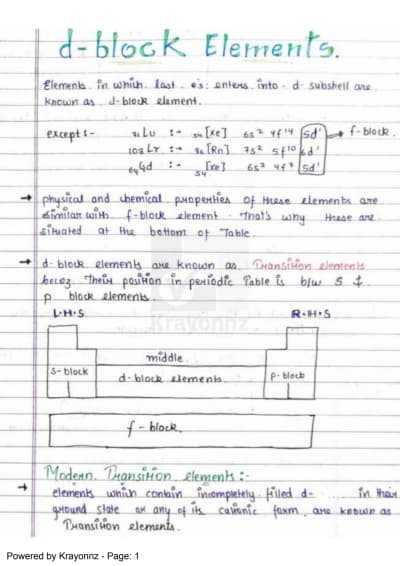 d-block Elements.
Elements in which last e⁻s enters into -d- subshell are
known as d-block element.
except :- ₇₁Lu :→ ₅₄[Xe] 6s² 4f¹⁴ 5d¹ → f-block.
103 Lr :→ ₈₆[Rn] 7s² 5f¹⁰ 6d¹
₆₄Gd :→ ₅₄[Xe] 6s² 4f⁷ 5d¹
→ physical and chemical properties of these elements are
similar with f-block element. That's why these are
situated at the bottom of Table.
→ d-block elements are known as Transition elements
becoz their position in periodic Table is b/w s &
p block elements.
L.H.S R.H.S
Krayonnz
middle
s-block d-block elements. p-block
f-block.
Modern Transition elements :-
→ elements which contain incompletely filled d- in their
ground state or any of its cationic form, are known as
Transition elements.
Powered by Krayonnz - Page: 1